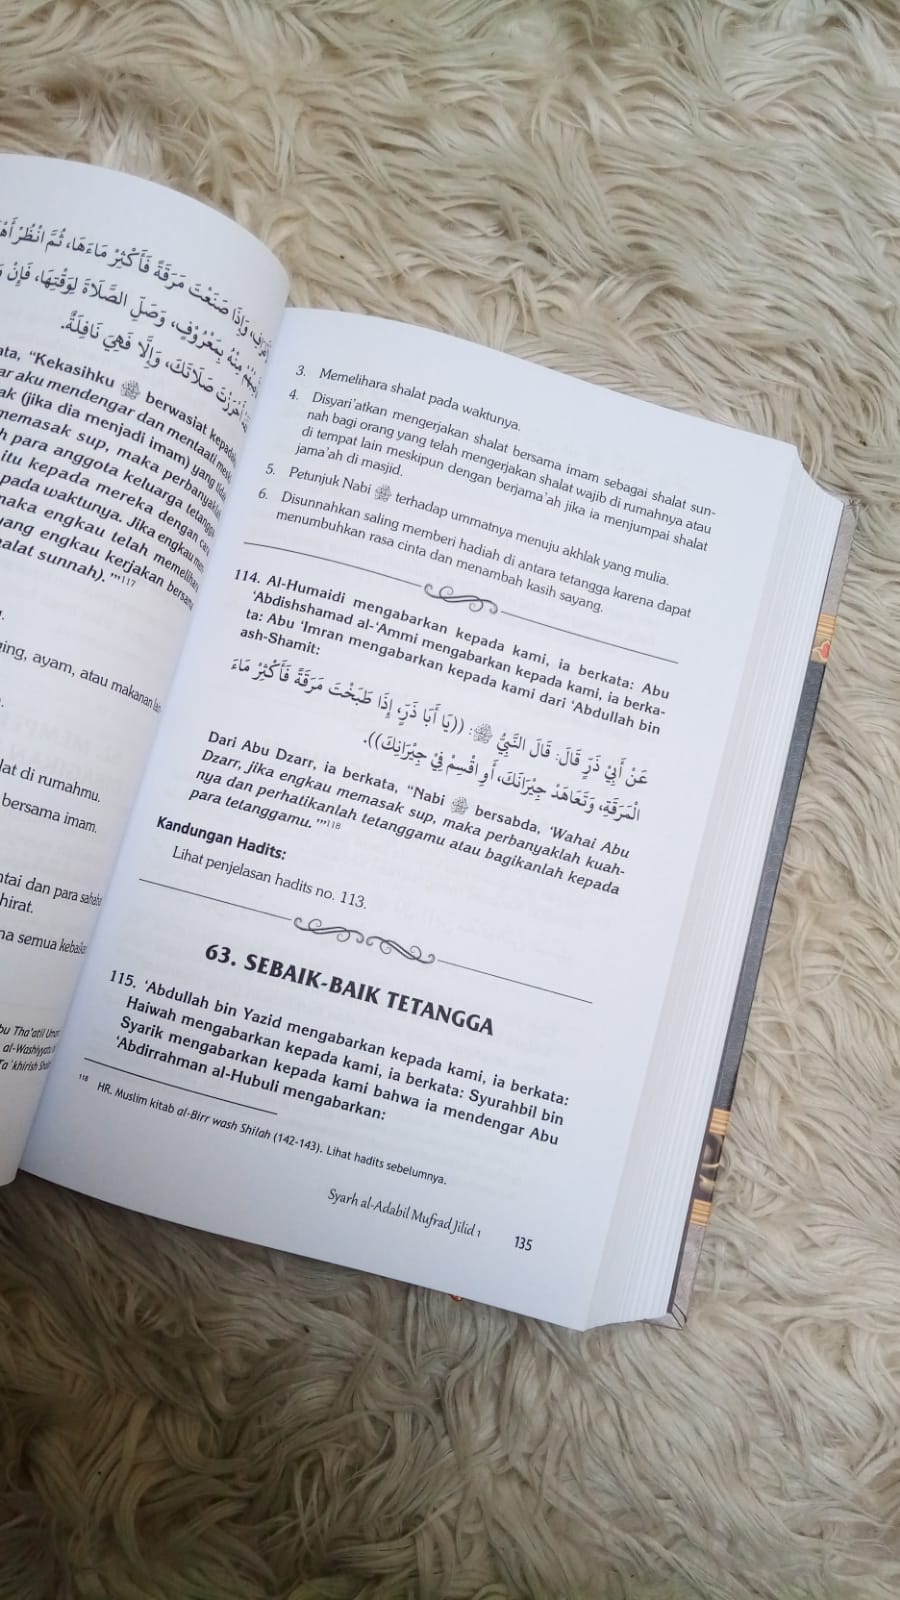 وَإِذَا صَنَعْتَ مَرَقَةً فَأَكْثِرْ مَاءَهَا، ثُمَّ انْظُرْ
مِنْهُ بِمَعْرُوْفٍ، وَصَلِّ الصَّلَاةَ لِوَقْتِهَا، فَإِنْ
أَحْرَزْتَ صَلَاتَكَ، وَإِلَّا فَهِيَ نَافِلَةٌ.
"Kekasihku ﷺ berwasiat kepada
ar aku mendengar dan mentaati
ak (jika dia menjadi imam) yang
memasak sup, maka perbanyak
h para anggota keluarga tetangga
itu kepada mereka dengan cara
pada waktunya. Jika engkau
naka engkau telah memelihara
yang engkau kerjakan bersama
halat sunnah).'"117
ging, ayam, atau makanan
lat di rumahmu.
bersama imam.
ntai dan para sahaba
hirat.
na semua kebaika
bu Tha'atil
al-Washiyyatu
Ta`khirish
3. Memelihara shalat pada waktunya.
4. Disyari'atkan mengerjakan shalat bersama imam sebagai shalat sun-
nah bagi orang yang telah mengerjakan shalat wajib di rumahnya atau
di tempat lain meskipun dengan berjama'ah jika ia menjumpai shalat
jama'ah di masjid.
5. Petunjuk Nabi ﷺ terhadap ummatnya menuju akhlak yang mulia.
6. Disunnahkan saling memberi hadiah di antara tetangga karena dapat
menumbuhkan rasa cinta dan menambah kasih sayang.
114. Al-Humaidi mengabarkan kepada kami, ia berkata: Abu
'Abdishshamad al-'Ammi mengabarkan kepada kami, ia berka-
ta: Abu 'Imran mengabarkan kepada kami dari 'Abdullah bin
ash-Shamit:
عَنْ أَبِيْ ذَرٍّ قَالَ: قَالَ النَّبِيُّ ﷺ: ((يَا أَبَا ذَرٍّ، إِذَا طَبَخْتَ مَرَقَةً فَأَكْثِرْ مَاءَ
الْمَرَقَةِ، وَتَعَاهَدْ جِيْرَانَكَ، أَوِ اقْسِمْ فِيْ جِيْرَانِكَ)).
Dari Abu Dzarr, ia berkata, "Nabi ﷺ bersabda, 'Wahai Abu
Dzarr, jika engkau memasak sup, maka perbanyaklah kuah-
nya dan perhatikanlah tetanggamu atau bagikanlah kepada
para tetanggamu.'"118
Kandungan Hadits:
Lihat penjelasan hadits no. 113.
63. SEBAIK-BAIK TETANGGA
115. 'Abdullah bin Yazid mengabarkan kepada kami, ia berkata:
Haiwah mengabarkan kepada kami, ia berkata: Syurahbil bin
Syarik mengabarkan kepada kami bahwa ia mendengar Abu
'Abdirrahman al-Hubuli mengabarkan:
118 HR. Muslim kitab al-Birr wash Shilah (142-143). Lihat hadits sebelumnya.
Syarh al-Adabil Mufrad Jilid 1
135